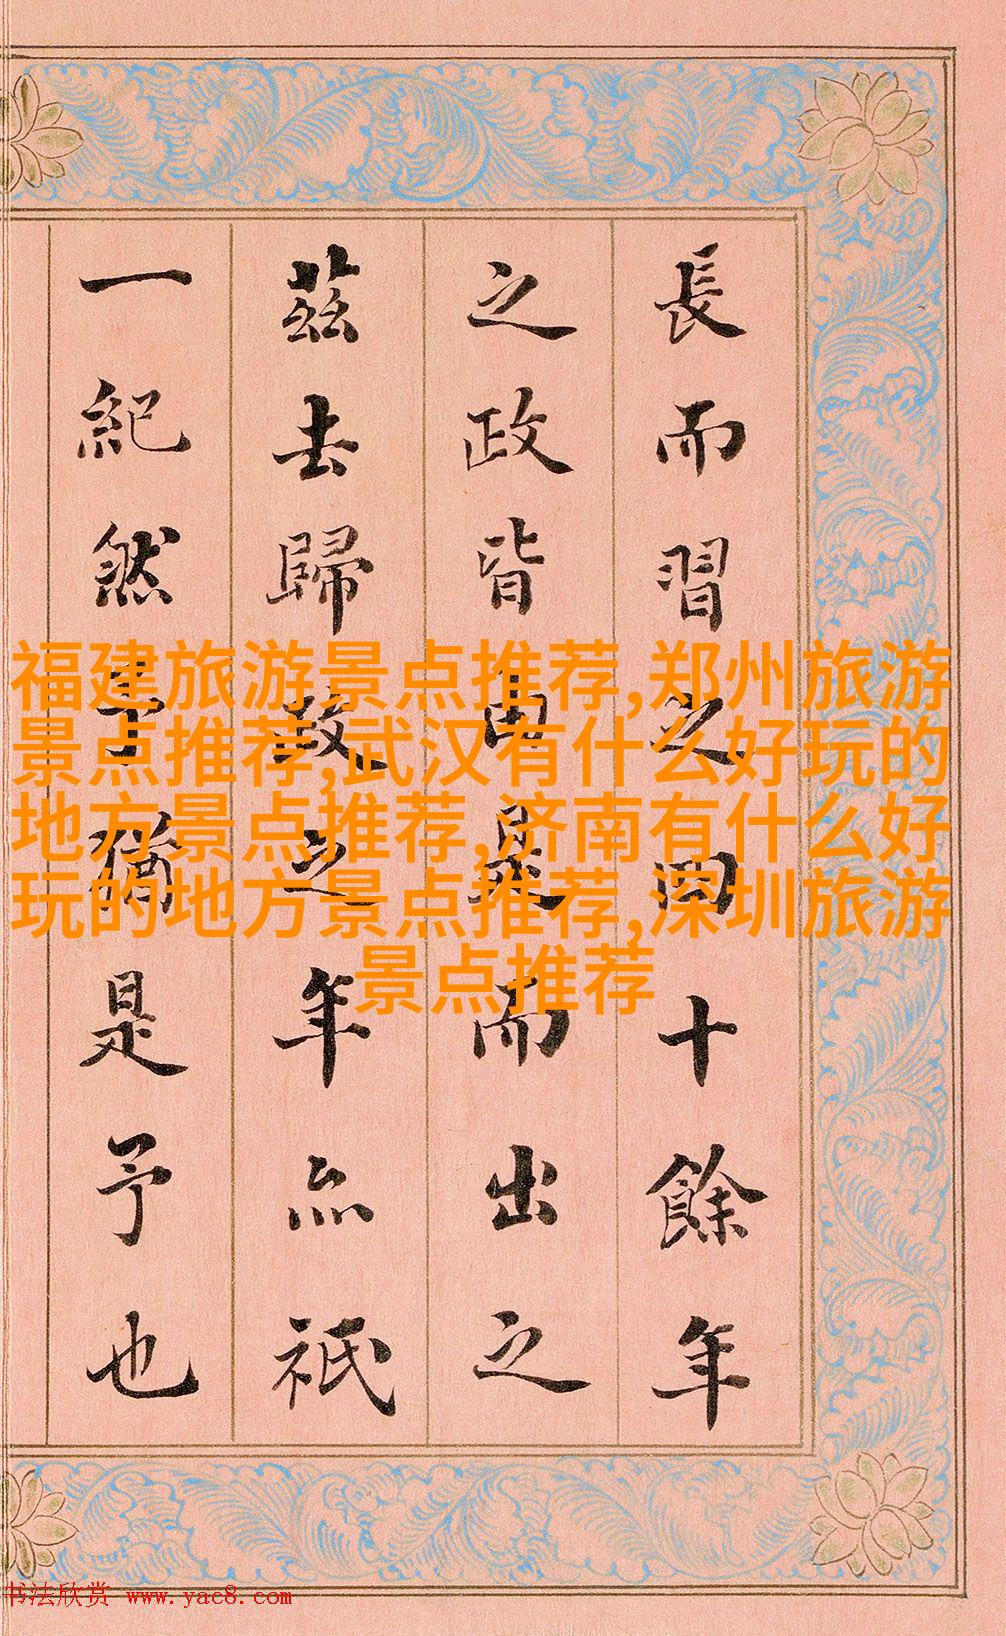 長而習之四十餘年
之政皆由是而出之
茲去歸政之年亦祇
一紀然猶是予也
福建旅游景点推荐,郑州旅游
景点推荐,武汉有什么好玩的
地方景点推荐,济南有什么好
玩的地方景点推荐,深圳旅游
景点推荐
书法欣赏 www.yac8.com